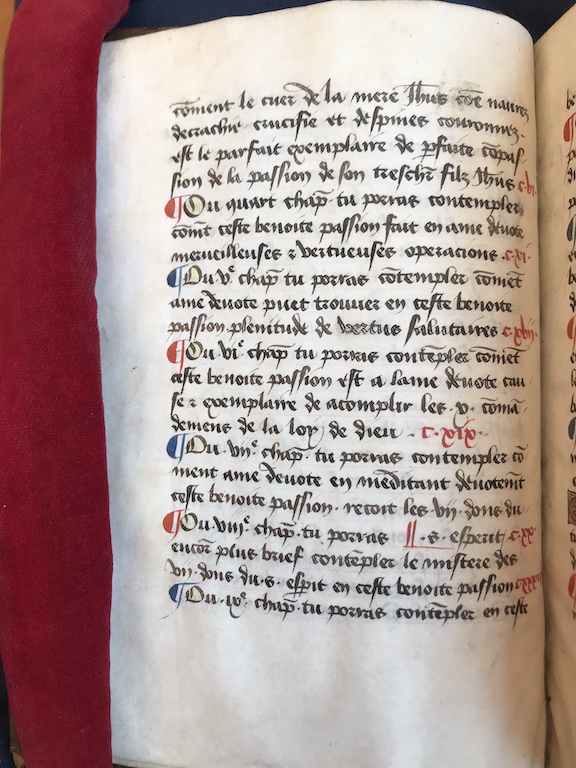 cōment le cuer de la mere Jh̄us cōe naurez
decrachie crucifie et despines couronnez.
est le parfait exemplaire de p̄faite cōpas
sion de la passion de son treschr̄ filz Jh̄us c. vi.
¶ Ou quart chap̄. tu porras contempler
cōmt ceste benoite passion fait en ame deuote
merueilleuses ⁊ vertueuses operacions .c. xi.
¶ Ou vᵉ. chap̄ tu porras cōtempler cōmēt
ame deuote puet trouuer en ceste benoite
passion plenitude de vertus salutaires c. xvii.
¶ Ou viᵉ. chap̄ tu porras contēpler cōmēt
ceste benoite passion est a lame deuote cau
se ⁊ exemplaire de acomplir les .x. cōmā
demens de la loy de dieu . c. xix.
¶ Ou .viiᵉ. chap̄. tu porras contempler cō
ment ame deuote en meditant deuotemēt
ceste benoite passion . recoit les .vii. dons du
¶ Ou viiiᵉ. chap̄. tu porras .s. esperit c. xx.
encor̄ plus brief contēpler le mistere des
vii. dons du .s. esp̄it en ceste benoite passion
¶ Ou .ixᵉ. chap̄. tu porras contēpler en ceste